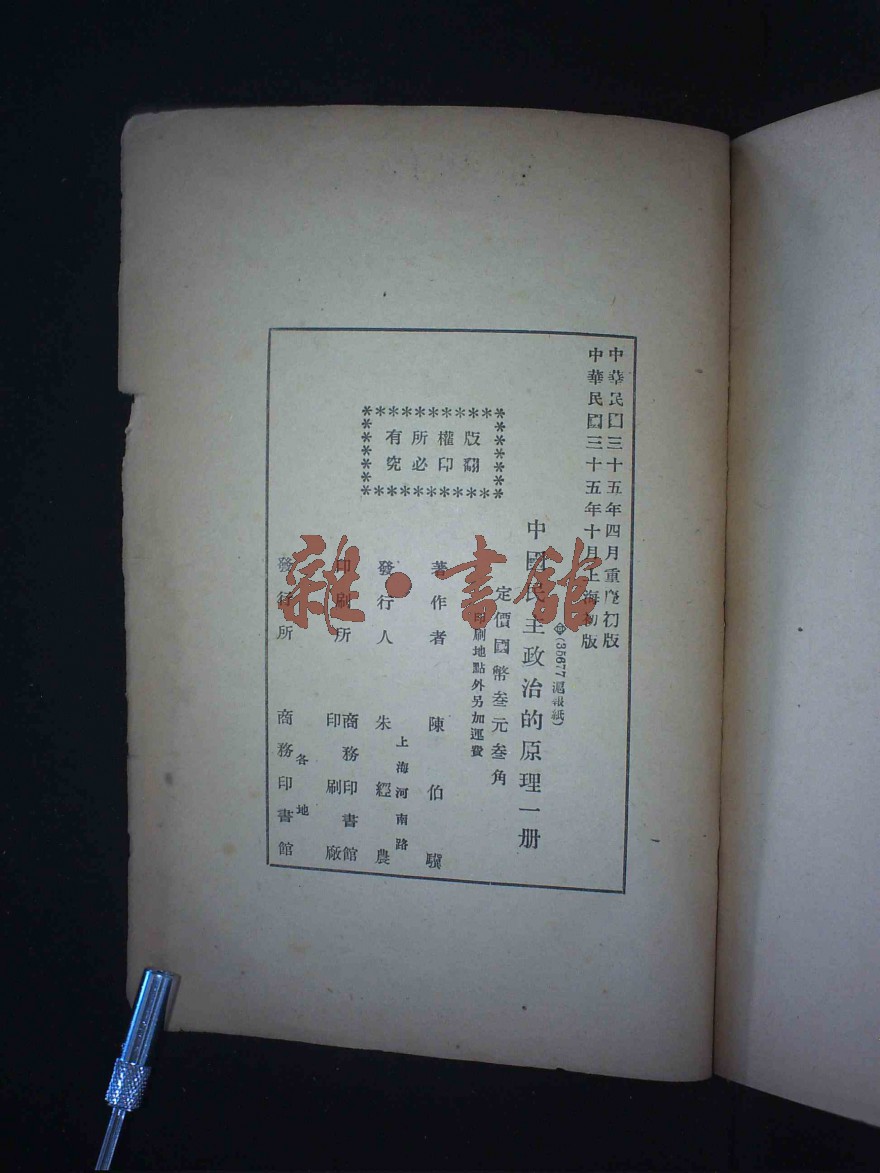 中華民國三十五年四月重慶初版
中華民國三十五年十月上海初版
(35677滬報紙)
中國民主政治的原理一册
定價國幣叁元叁角
印刷地點外另加運費
版權所有
翻印必究
著作者 陳伯驥
上海河南路
發行人 朱經農
印刷所 商務印書館
印刷廠
發行所 各地
商務印書館
雜·書館